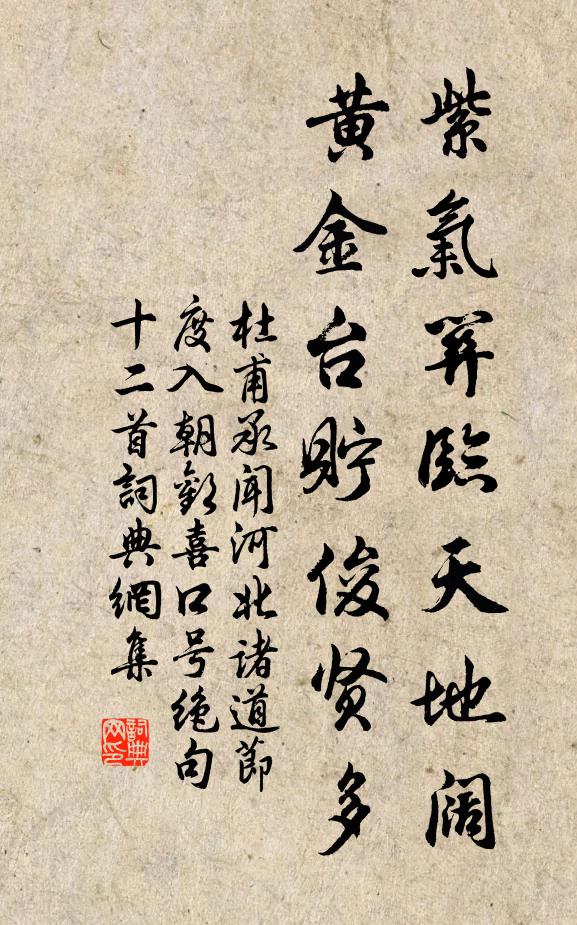 紫氣関臨天地阔
黄金台貯俊贤多
杜甫承聞河北諸道節
度入朝歡喜口号绝句
十二首詞典網集
詞典网印